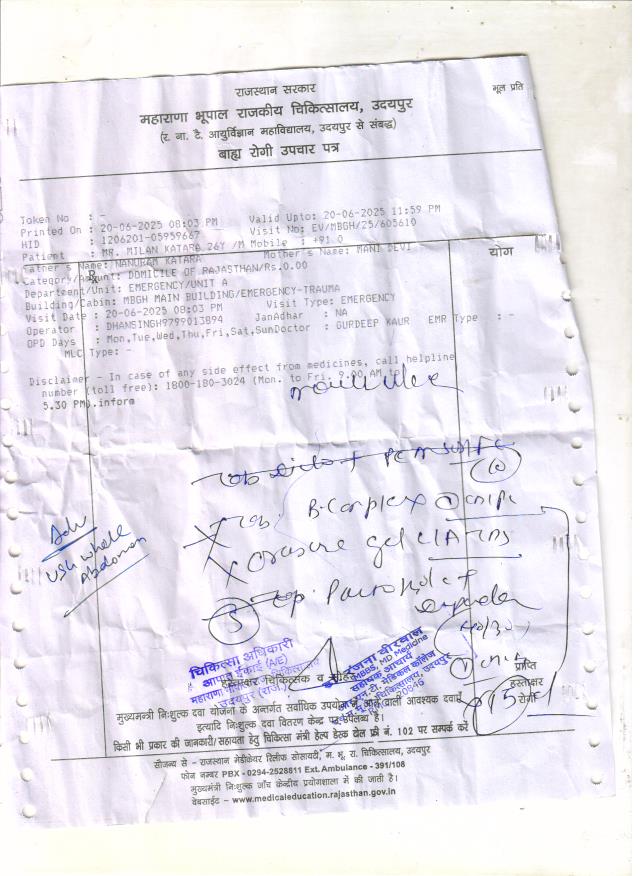 राजस्थान सरकार
मूल प्रति
महाराणा भूपाल राजकीय चिकित्सालय, उदयपुर
(र. ना. टै. आयुर्विज्ञान महाविद्यालय, उदयपुर से संबद्ध)
बाह्य रोगी उपचार पत्र
Token No : -
Printed On : 20-06-2025 08:03 PM Valid Upto: 20-06-2025 11:59 PM
HID : 1206201-05959667 Visit No: EV/MBGH/25/605610
Patient : MR. MILAN KATARA 26Y /M Mobile : +91 0
Father's Name: NANURAM KATARA Mother's Name: MANI DEVI
योग
Category/Amount: DOMICILE OF RAJASTHAN/Rs.0.00
Department/Unit: EMERGENCY/UNIT A
Building/Cabin: MBGH MAIN BUILDING/EMERGENCY-TRAUMA
Visit Date : 20-06-2025 08:03 PM Visit Type: EMERGENCY
Operator : DHANSINGH9799013894 JanAdhar : NA
OPD Days : Mon,Tue,Wed,Thu,Fri,Sat,SunDoctor : GURDEEP KAUR EMR Type : -
MLC Type: -
Disclaimer - In case of any side effect from medicines, call helpline
number (toll free): 1800-180-3024 (Mon. to Fri. 9.00 AM to
5.30 PM).inform
mouth ulcer
B-Complex
gel
Adv
USG whole
Abdomen
चिकित्सा अधिकारी
आपात ईकाई (A/E)
उदयपुर (राज.)
रंजना बीरवाल
MBBS, MD Medicine
सहायक आचार्य
प्राप्ति
हस्ताक्षर
रोगी
हस्ताक्षर चिकित्सक व
मुख्यमन्त्री निःशुल्क दवा योजना के अन्तर्गत सर्वाधिक उपयोग में आने वाली आवश्यक दवाएं
इत्यादि निःशुल्क दवा वितरण केन्द्र पर उपलब्ध है।
किसी भी प्रकार की जानकारी/सहायता हेतु चिकित्सा मंत्री हेल्प डेस्क टोल फ्री नं. 102 पर सम्पर्क करें
सौजन्य से - राजस्थान मेडीकेयर रिलीफ सोसायटी, म. भू. रा. चिकित्सालय, उदयपुर
फोन नम्बर PBX - 0294-2528811 Ext. Ambulance - 391/108
मुख्यमन्त्री निःशुल्क जाँच केन्द्रीय प्रयोगशाला में की जाती है।
वेबसाईट - www.medicaleducation.rajasthan.gov.in